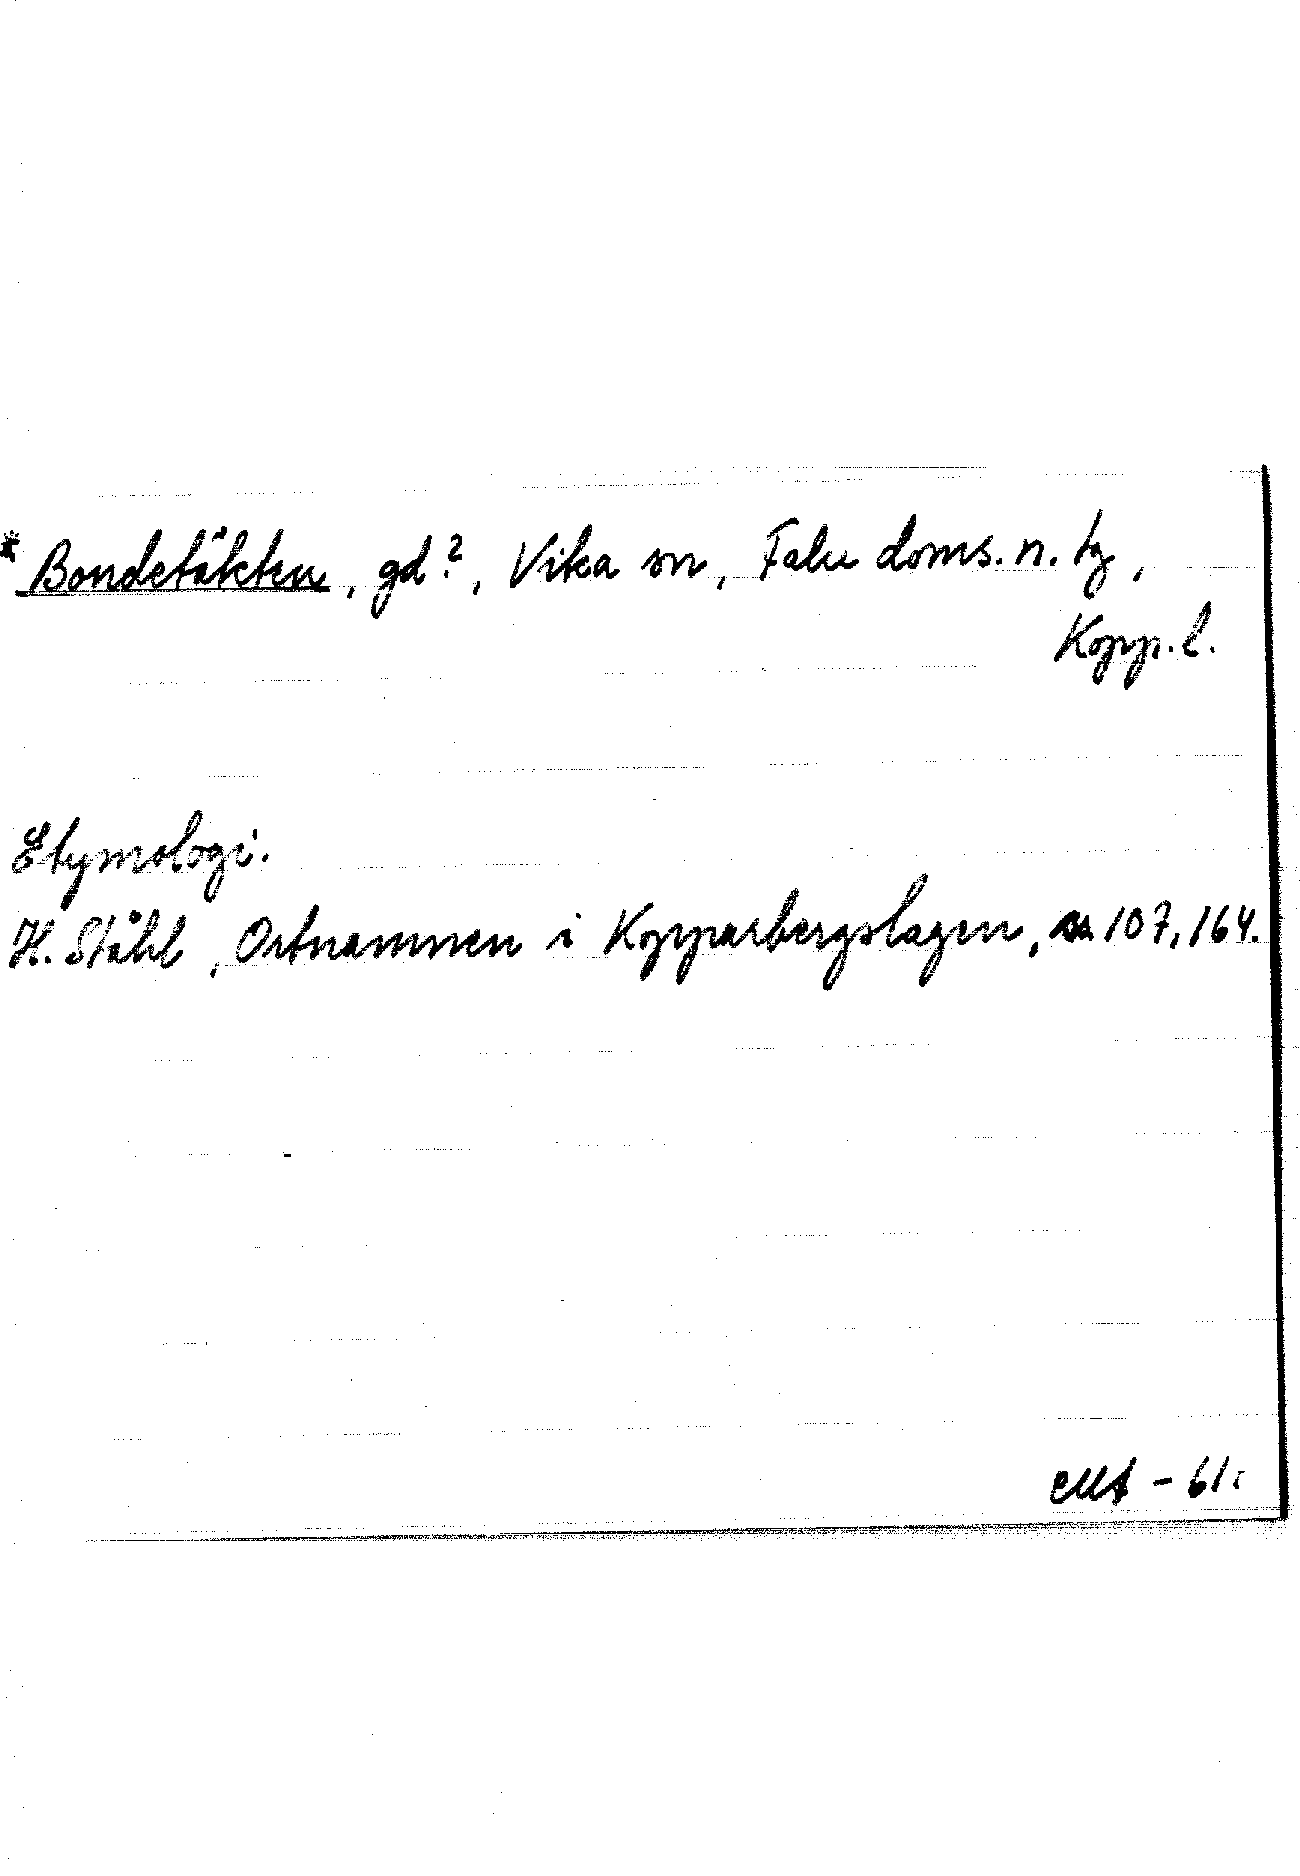 * Bondetäkten, gd?, Vika sn, Falu doms. n. tg,
Kopp. l.
Etymologi.
H. Ståhl, Ortnamnen i Kopparbergslagen, 107, 164.
- 61.